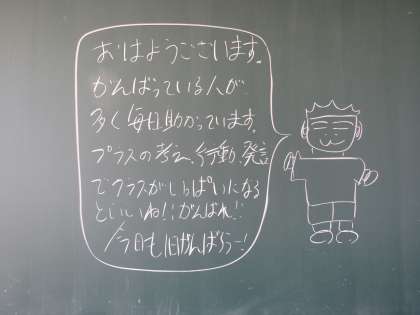 おはようございます。
がんばっている人が
多く毎日助かっています。
プラスの考え、行動、発言
でクラスがいっぱいになる
といいね!!がんばれ!!
今日も1日がんばろう!